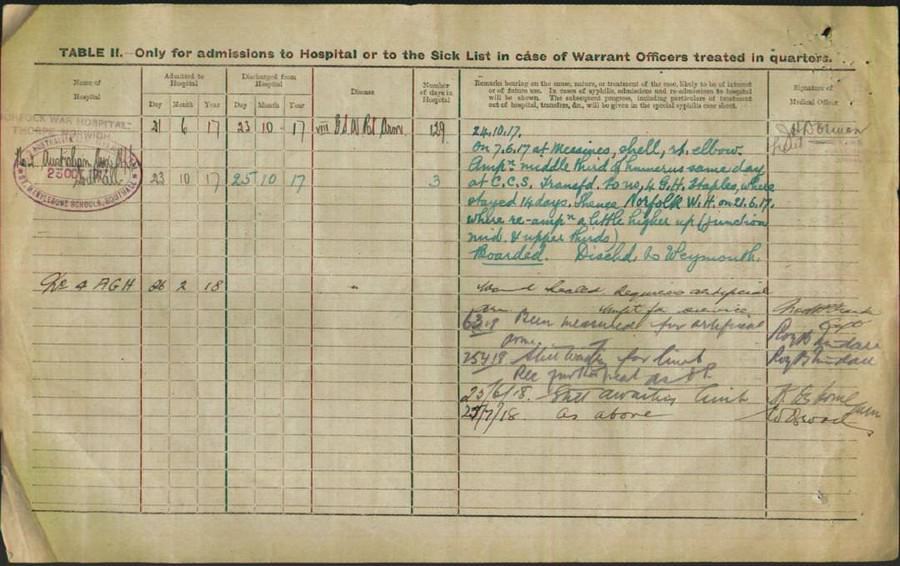 TABLE II.—Only for admissions to Hospital or to the Sick List in case of Warrant Officers treated in quarters.
Name of Hospital
Admitted to Hospital
Discharged from Hospital
Disease
Number of days in Hospital
Remarks bearing on the cause, nature, or treatment of the case, likely to be of interest or of future use. In cases of syphilis, admissions and re-admissions to hospital will be shown. The subsequent progress, including particulars of treatment out of hospital, transfer, &c., will be given in the special syphilis case sheet.
Signature of Medical Officer
Day Month Year Day Month Year
NORFOLK WAR HOSPITAL
THORPE, NORWICH
21 6 17 23 10 17 VIII 129
No. 2 Australian
Southall
23 OCT 1917
ST. MARYLEBONE SCHOOLS, SOUTHALL
23 10 17 25 10 17 3
24.10.17.
On 7.6.17 at Messines, shell, rt. elbow.
Ampn middle third of humerus same day
at C.C.S. Transfd. to no. 4 G.H. Etaples, where
stayed 14 days. Thence Norfolk W.H. on 21.6.17.
where re-ampn a little higher up (junction
mid. & upper thirds)
Boarded. Dischd. to Weymouth.
4 AGH 26 2 18 "
Wound healed Requires artificial
arm unfit for service
Been measured for artificial
arm.
25 4 18 Still waiting for limb
25/6/18. Still awaiting limb
25/7/18 As above